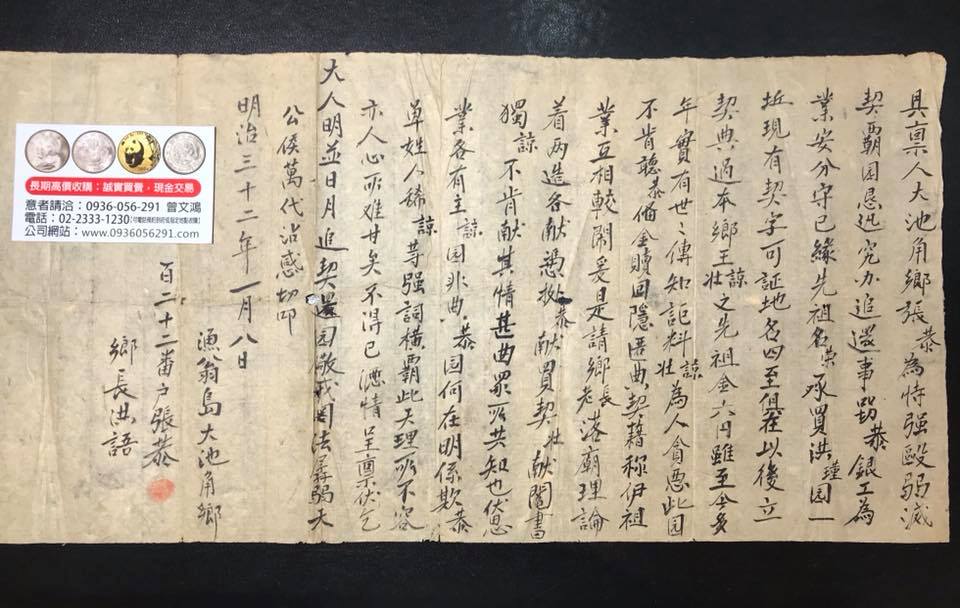 具稟人大池角鄉張恭為恃强毆弱滅
契覇园恳迅究办追还事窃恭銀工為
業安分守已緣先祖名荣承買洪瑾园一
坵現有契字可証地名四至俱在以後立
契典過本鄉王諒壮之先祖金六円雖至今多
年實有世〻傳知詎料諒壮為人貪惡此园
不肯聽恭備金贖回隱匿典契藉称伊祖
業互相較鬧爰是請鄉長老落廟理論
着两造各献憑據恭献買契壮献鬮書
獨諒不肯献其情甚曲眾所共知也伏思
業各有主諒园非典恭园何在明係欺恭
单姓人稀諒等强詞橫霸此天理所不容
亦人心所难甘矣不得已瀝情呈稟伏乞
大人明並日月追契還园儆我罔法孱弱天
公侯萬代沾感切叩
明治三十二年一月八日
漁翁島大池角鄉
百二十二番户張恭
鄉長洪語
長期高價收購：誠實買賣，現金交易
意者請洽：0936-056-291 曾文鴻
電話：02-2333-1230
公司網站：www.0936056291.com